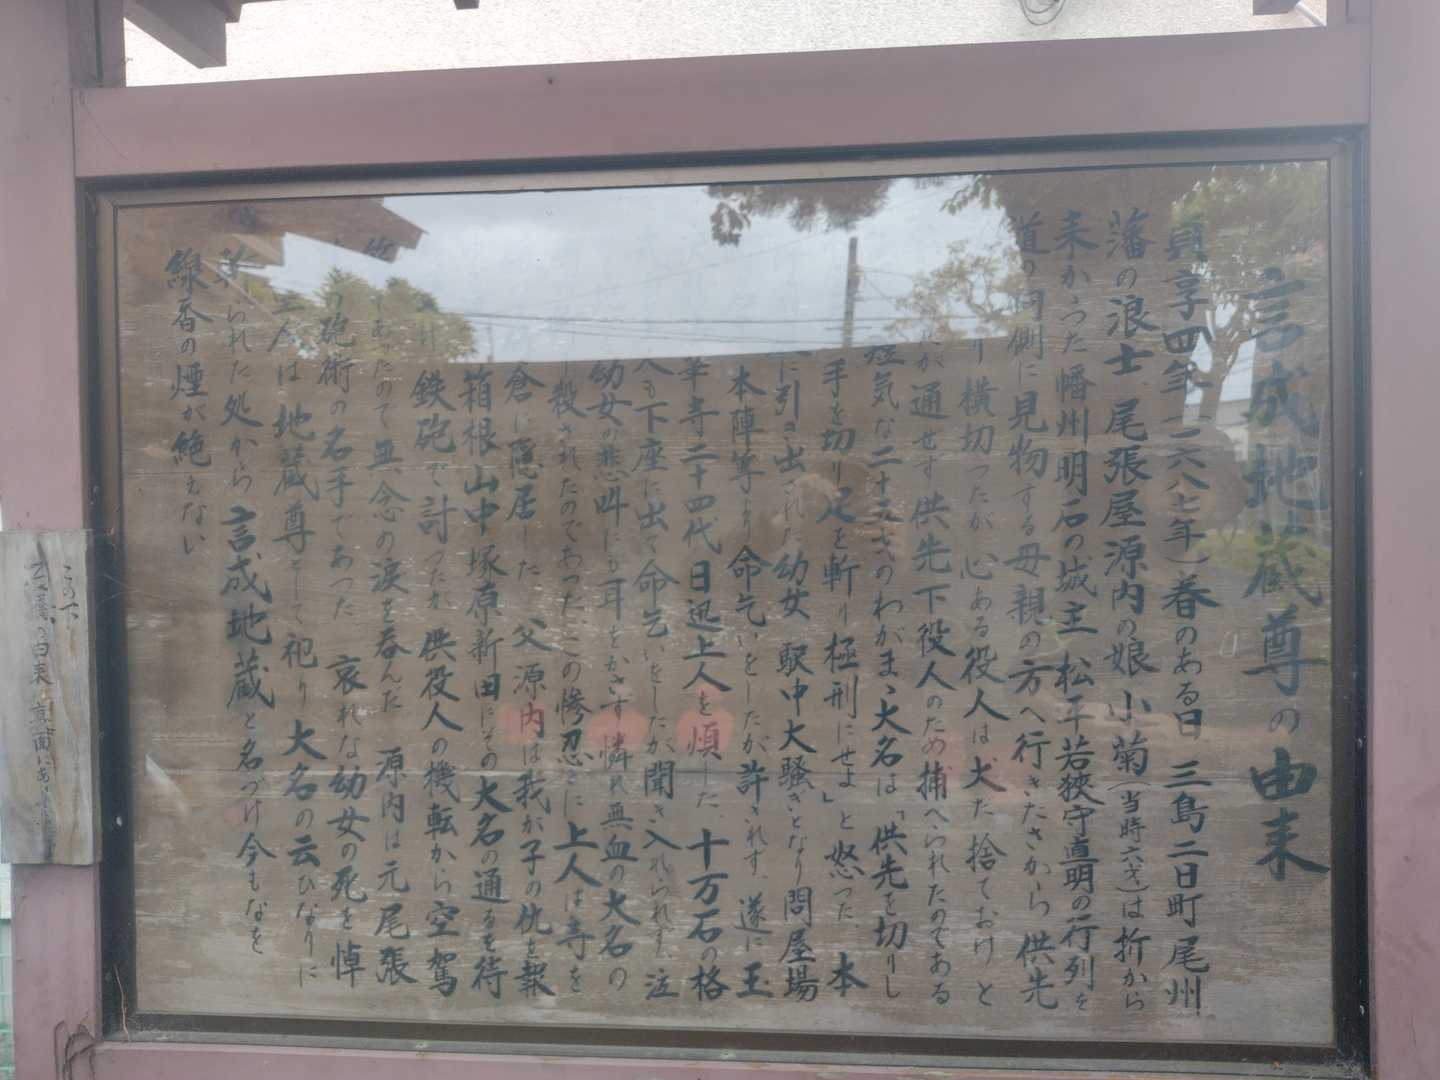 言成地蔵尊の由来
貞享四年(一六八七年)春のある日 三島二日町尾州
藩の浪士、尾張屋源内の娘小菊(当時六才)は折から
来かゝつた幡州明石の城主松平若狭守直明の行列を
道の向側に見物する母親の方へ行きたさから 供先
り横切つたが 心ある役人は犬だ捨ておけ と
が通せず供先下役人のため捕へられたのである
短気な二十五才のわがまゝ大名は「供先を切りし
手を切り足を斬り極刑にせよ」と怒つた、本
に引き出された幼女 駅中大騒ぎとなり問屋場
本陣等より命乞いをしたが許されず、遂に玉
華寺二十四代日迅上人を煩した、十万石の格
人も下座に出て命乞いをしたが聞き入れられず、泣
幼女の悲叫にも耳をかさず憐れ無血の大名の
殺されたのであつた、この惨忍さに上人は寺を
倉に隠居した 父源内は我が子の仇を報
箱根山中塚原新田にその大名の通るを待
鉄砲で討つたが 供役人の機転から空駕
あつたので無念の涙を呑んだ 源内は元尾張
砲術の名手であつた 哀れな幼女の死を悼
人は地蔵尊として祀り大名の云ひなりに
られた処から 言成地蔵と名づけ今もなを
線香の煙が絶えない
この下
の由来 真面にあ